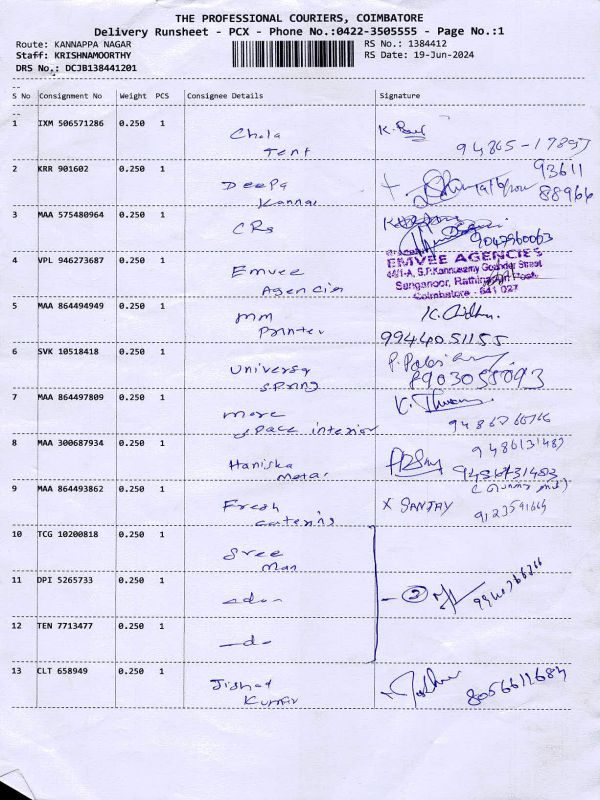 THE PROFESSIONAL COURIERS, COIMBATORE
Delivery Runsheet - PCX - Phone No.:0422-3505555 - Page No.:1
Route: KANNAPPA NAGAR RS No.: 1384412
Staff: KRISHNAMOORTHY RS Date: 19-Jun-2024
DRS No.: DCJB138441201
S No Consignment No Weight PCS Consignee Details Signature
1 IXM 506571286 0.250 1 Chola
Tent
2 KRR 901602 0.250 1 Deepa 93611
Kannan 88966
3 MAA 575480964 0.250 1 CRs
9047960063
4 VPL 946273687 0.250 1 Emvee EMVEE AGENCIES
Agencies 44/1-A, S.P.Kannusamy Gounder Street
Sanganoor, Rathinapuri Post
Coimbatore - 641 027
5 MAA 864494949 0.250 1 MM
Printer 9944051155
6 SVK 10518418 0.250 1 Universal
Spring 8903055093
7 MAA 864497809 0.250 1 More
space interior
8 MAA 300687934 0.250 1 Haniska 9486131483
Metal 9486131483
9 MAA 864493862 0.250 1 Fresh X SANJAY
catering
10 TCG 10200818 0.250 1 Sree
Man
11 DPI 5265733 0.250 1 -do- - 3
12 TEN 7713477 0.250 1 -do-
13 CLT 658949 0.250 1 Jishnet
Kumar